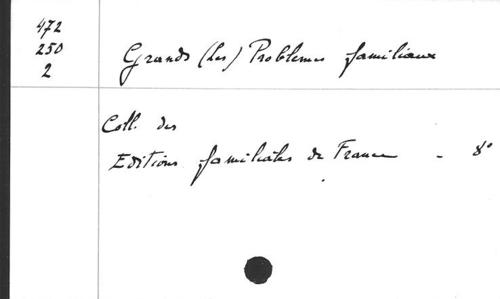 472
250
2
Grands (Les) Problemes familiaux
Coll. des
Editions familiales de France - 8°